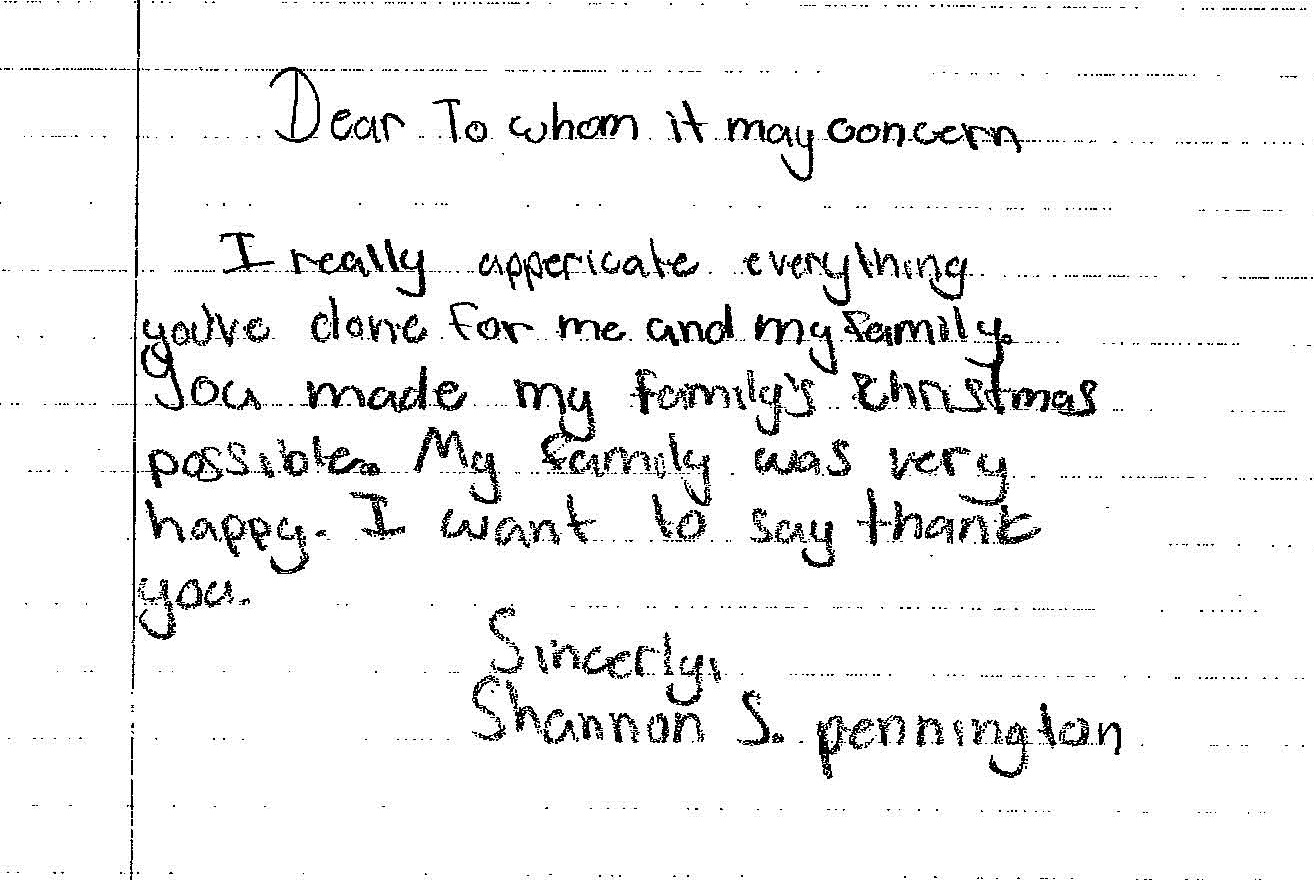 Dear To whom it may concern
I really appericate everything
you've done for me and my family.
You made my family's Christmas
possible. My family was very
happy. I want to say thank
you.
Sincerly,
Shannon S. pennington